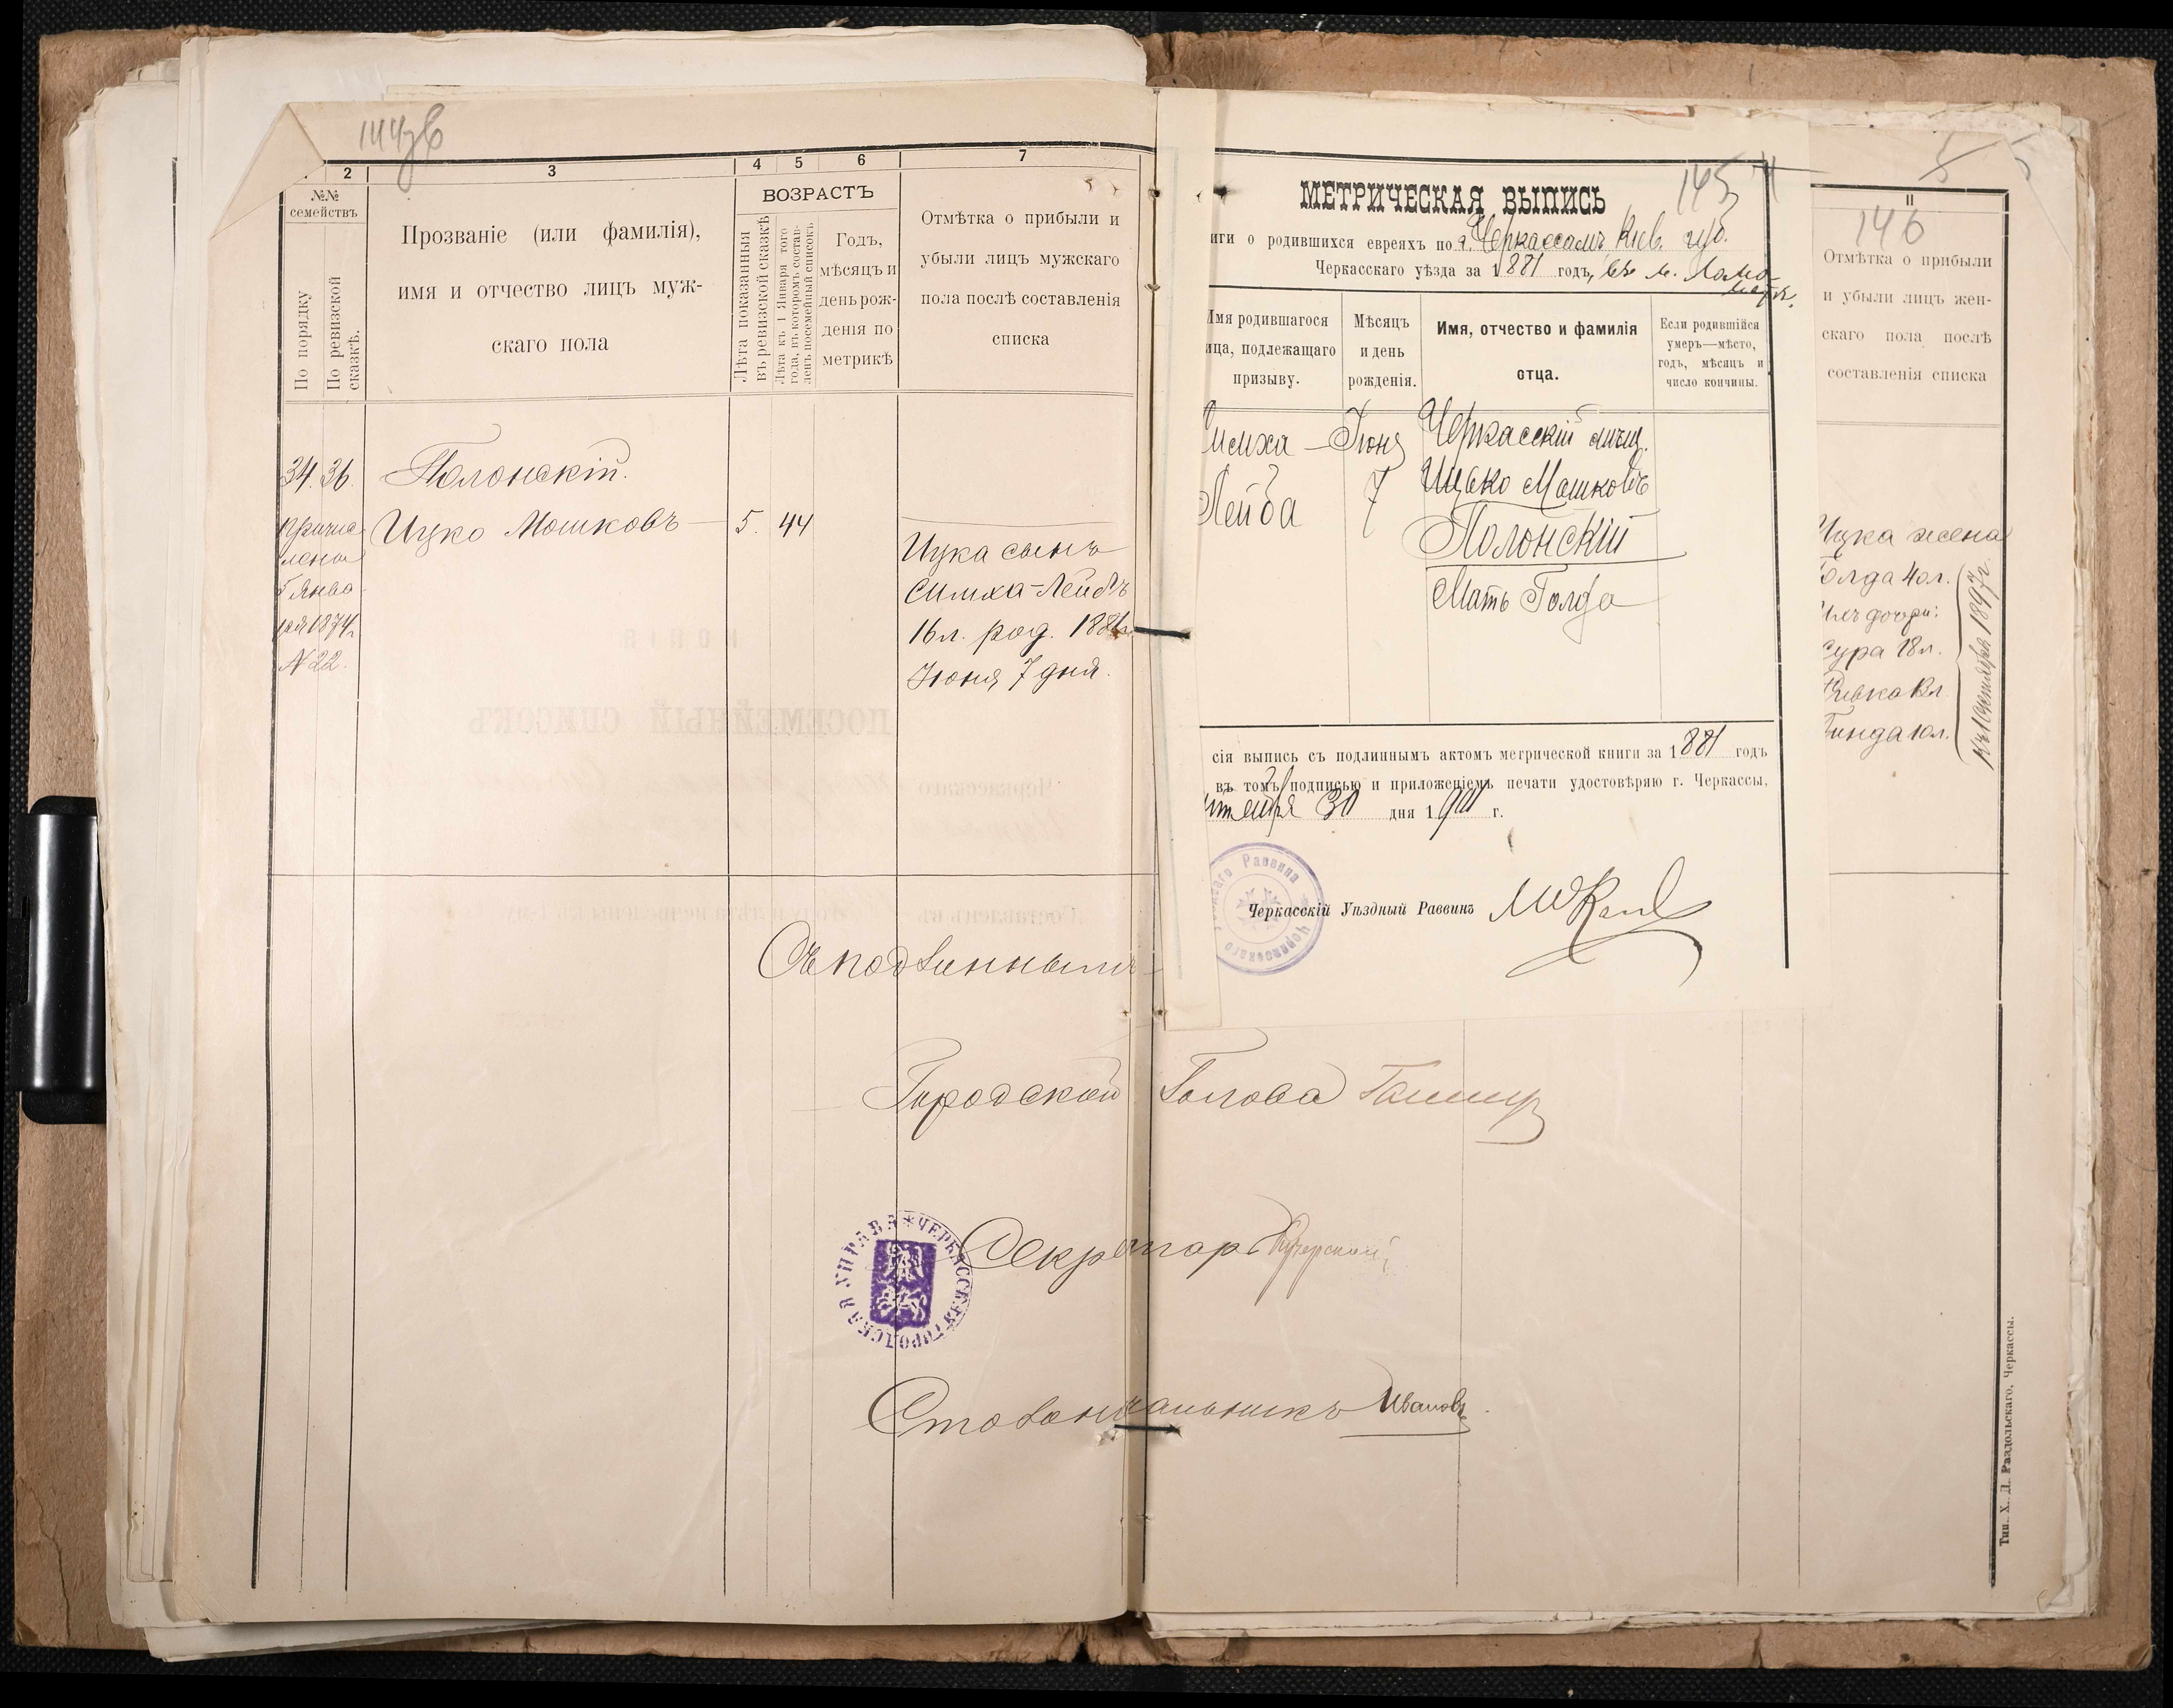 144об
2 3 4 5 6 7
№№
семействъ
По порядку
По ревизской
сказкѣ.
Прозваніе (или фамилія),
имя и отчество лицъ муж-
скаго пола
ВОЗРАСТЪ
Лѣта показанныя
въ ревизской сказкѣ
Лѣта къ 1 Января того
года, въ которомъ состав-
ленъ посемейный списокъ
Годъ,
мѣсяцъ и
день рож-
денія по
метрикѣ
Отмѣтка о прибыли и
убыли лицъ мужскаго
пола послѣ составленія
списка
34. 36. Полонскій.
Причис-
ленъ
5 Янва-
ря 1874г.
N 22.
Ицко Мошковъ 5. 44
Ицка сынъ
Симха-Лейбъ
16л. род. 1881г.
Іюня 7 дня.
Съ подлиннымъ
Городской Голова
Секретарь
Столоначальникъ Ивановъ
ЧЕРКАССКАЯ ГОРОДСКАЯ УПРАВА
145
МЕТРИЧЕСКАЯ ВЫПИСЬ
иги о родившихся евреяхъ по г. Черкассамъ Кіев. губ.
Черкасскаго уѣзда за 1881 годъ, въ м.
Имя родившагося
ица, подлежащаго
призыву.
Мѣсяцъ
и день
рожденія.
Имя, отчество и фамилія
отца.
Если родившійся
умеръ—мѣсто,
годъ, мѣсяцъ и
число кончины.
Симха- Іюня Черкасскій мѣщ.
Лейба 7 Ицько Мошковъ
Полонскій
Мать Голда
сія выпись съ подлиннымъ актомъ метрической книги за 1881 годъ
въ томъ подписью и приложеніемъ печати удостовѣряю г. Черкассы,
нтября 30 дня 1901 г.
Черкасскій Уѣздный Раввинъ
Черкасскаго Раввина
5 5
11
146
Отмѣтка о прибыли
и убыли лицъ жен-
скаго пола послѣ
составленія списка
Ицка жена
Голда 40л.
Ихъ дочери:
Сура 18л.
Ривка 12л.
Гинда 10л.
Къ 1 Октября 1897г.
Тип. Х. Д. Раздольскаго, Черкассы.